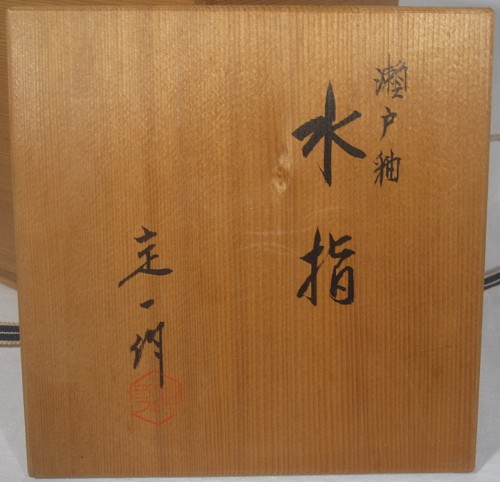 瀬戸釉
水指
定一作